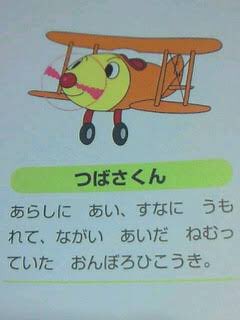 つばさくん
あらしに　あい、すなに　うも
れて、ながい　あいだ　ねむっ
ていた　おんぼろひこうき。